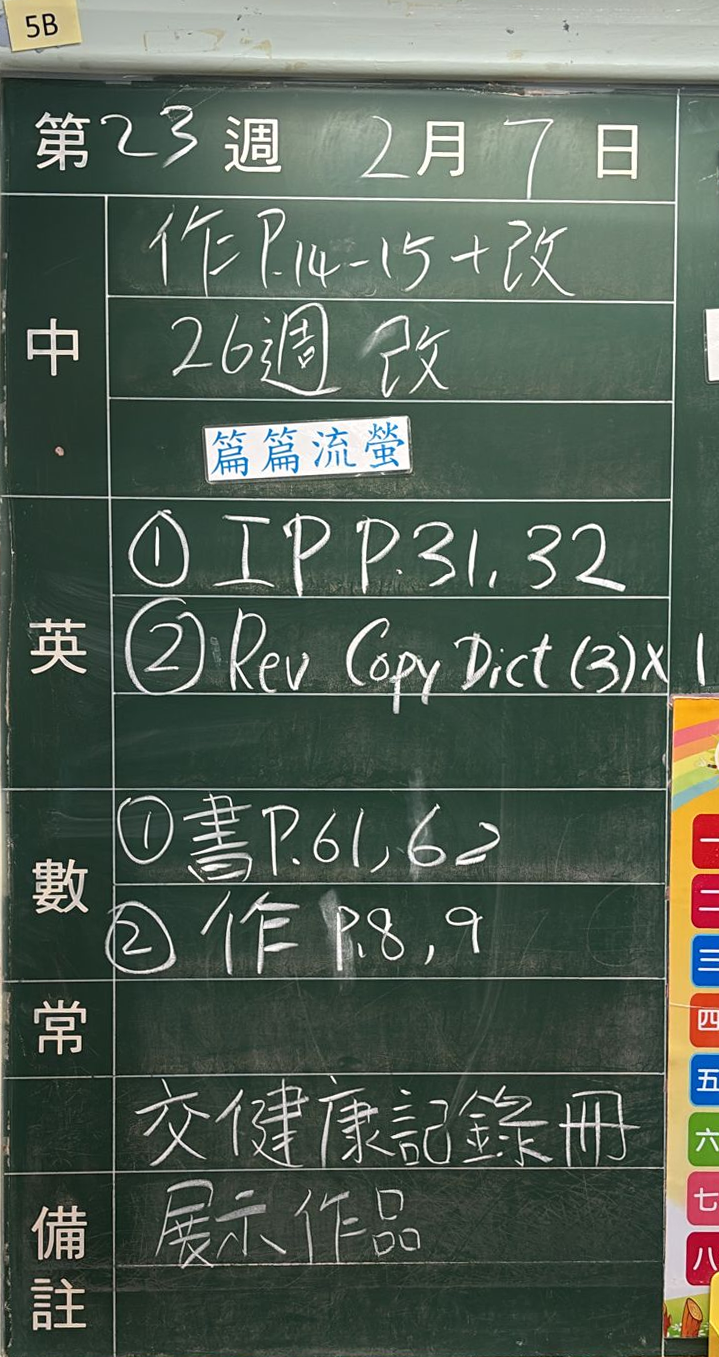 5B
第23週 2月7日
中
作P.14-15+改
26週 改
篇篇流螢
英
① IP P.31, 32
② Rev Copy Dict (3)x1
數
① 書P.61, 62
② 作 P.8, 9
常
交健康記錄冊
備註
展示作品
一
二
三
四
五
六
七
八